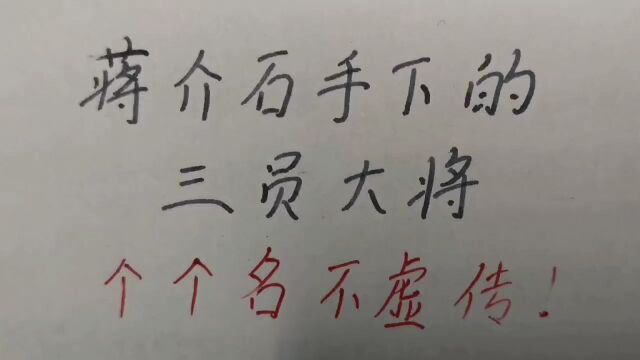 蒋介石手下的
三员大将
个个名不虚传!